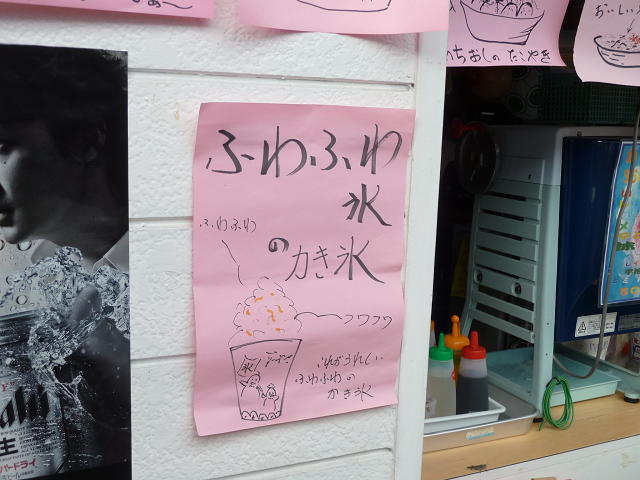 いちおしのたこやき
おいしい
ふわふわ
氷
のかき氷
ふわふわ
フワフワ
氷
これがうれしい
ふわふわの
かき氷
Asahi
生